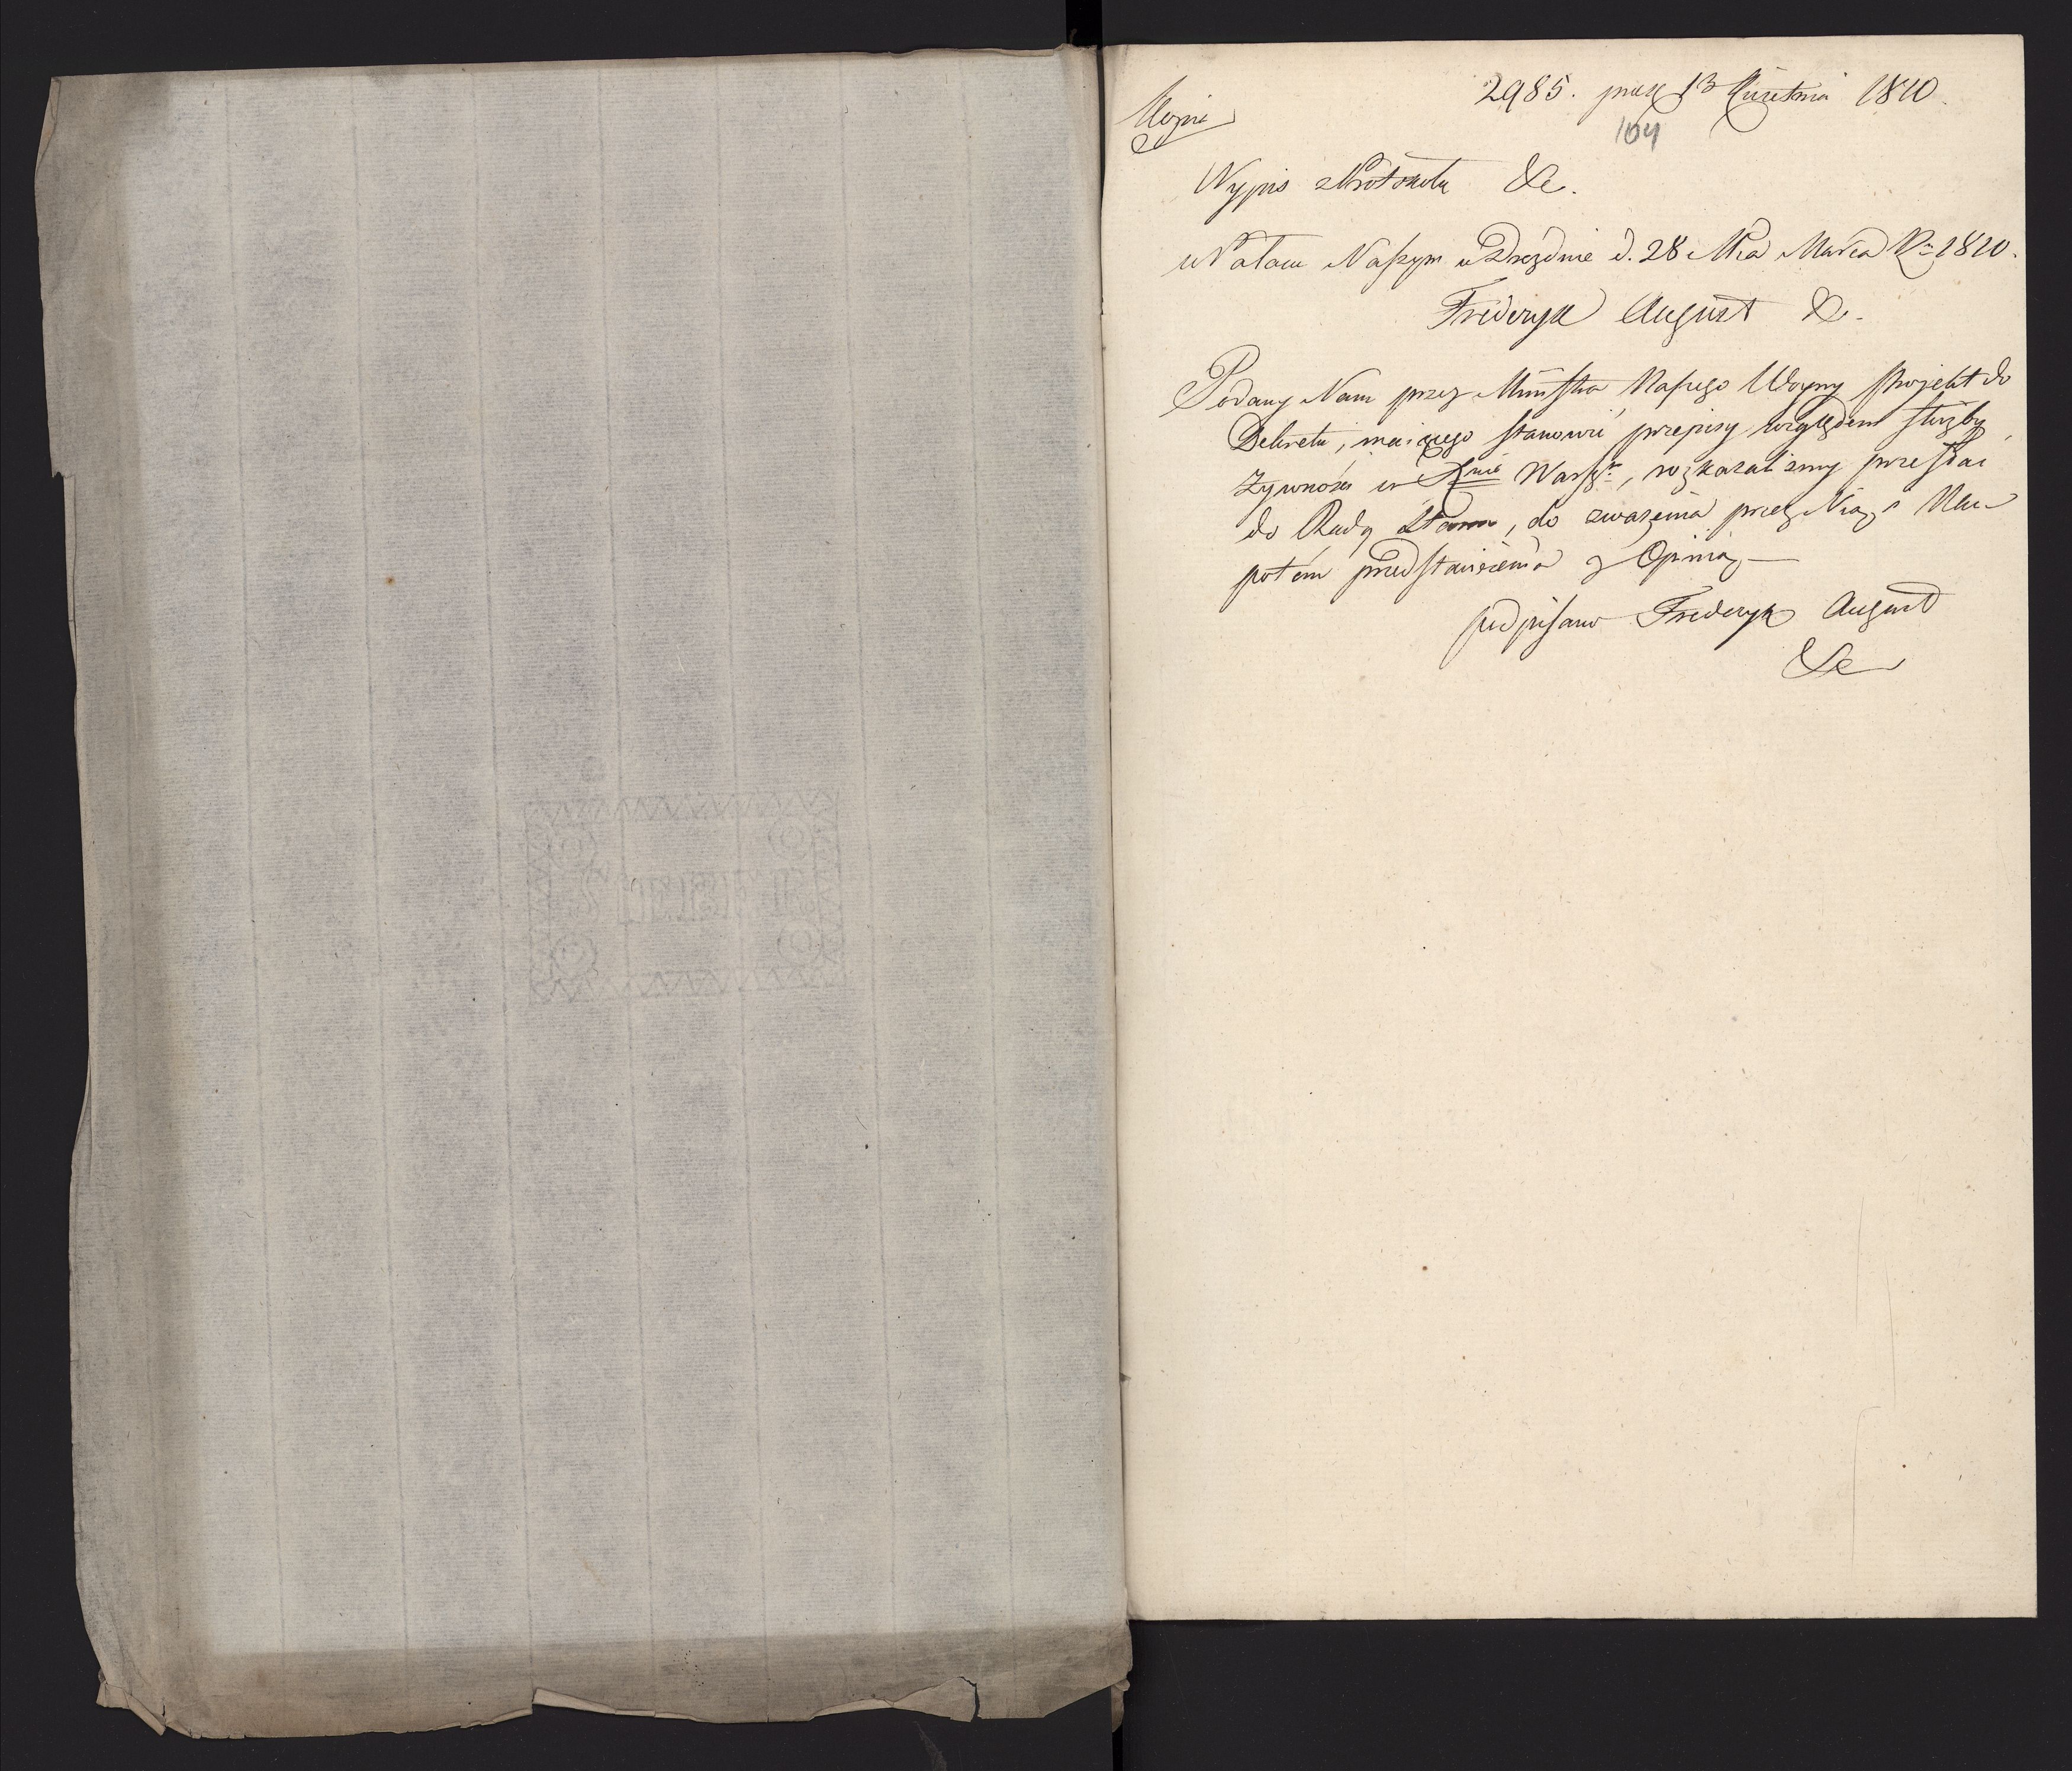 Kopia
2985. praes 13 Kwietnia 1810.
104
Wypis z Protokułu &c.
w Pałacu Naszym w Dreznie d. 28 Mca Marca Rn 1810.
Frideryk August &c.
Podany Nam przez Ministra Naszego Woyny Projekt do
Dekretu, maiącego stanowić przepisy względem służby
żywności w Xtwie Warszm, rozkazaliśmy przesłać
do Rady Stanu, do zważenia przez Nią, i Nam
potém przedstawienia z Opinią —
podpisano Frideryk August
&c